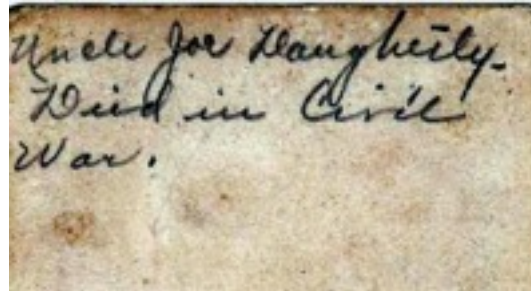 Uncle Joe Daugherty.
Died in Civil
War.